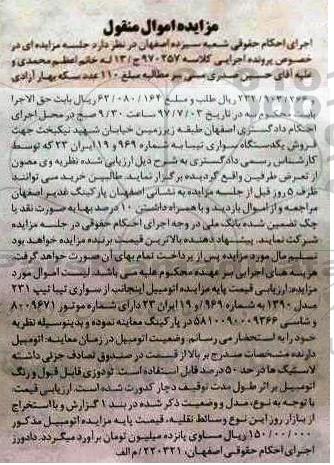 مزایده اموال منقول
اجرای احکام حقوقی شعبه سیزده اصفهان در نظر دارد جلسه مزایده ای در
خصوص پرونده اجرایی کلاسه 970257 ج/13 له خانم اعظم محمدی و
علیه آقای حسین صدری مبنی بر مطالبه مبلغ 110 عدد سکه بهار آزادی
ریال طلب و مبلغ 63/080/164 ریال بابت حق الاجرا
بابت محکوم به در تاریخ 97/7/03 ساعت 9/30 صبح در محل اجرای
احکام دادگستری اصفهان طبقه زیرزمین خیابان شهید نیکبخت جهت
فروش یکدستگاه سواری تیبا به شماره 969 و 19 ایران 23 که توسط
کارشناس رسمی دادگستری به شرح ذیل ارزیابی شده نظریه وی مصون
از تعرض طرفین واقع گردیده برگزار نماید. طالبین خرید می توانند
ظرف 5 روز قبل از جلسه مزایده به نشانی اصفهان پارکینگ غدیر اصفهان
مراجعه و از اموال بازدید و با همراه داشتن 10 درصد بها به صورت نقد یا
چک تضمین شده بانک ملی در وجه اجرای احکام حقوقی در جلسه مزایده
شرکت نمایند. پیشنهاد دهنده بالاترین قیمت برنده مزایده خواهد بود
تسلیم مال مورد مزایده پس از پرداخت تمام بهای آن صورت خواهد گرفت.
هزینه های اجرایی بر عهده محکوم علیه می باشد. لیست اموال مورد
مزایده: ارزیابی قیمت پایه مزایده اتومبیل اینجانب از سواری تیبا تیپ 231
مدل 1390 به شماره 969 و 19 ایران 23 دارای شماره موتور 8009671
و شاسی 5810090009366 در پارکینگ معاینه نموده و بدینوسیله نظریه
خود را به استحضار می رسانم. وضعیت اتومبیل در زمان معاینه: اتومبیل
دارنده مشخصات مندرج بر بالا از قسمت در صندوق تصادف جزئی داشته
لاستیک ها در حد 50 درصد قابل استفاده است. تودوزی قابل قبول و رنگ
اتومبیل بر اثر طول مدت توقیف دچار کدورت شده است. ارزیابی قیمت:
با توجه به نوع، مدل و وضعیت ذکر شده در بند 1 گزارش و با استخراج
از بازار روز این نوع وسائط نقلیه، قیمت پایه مزایده اتومبیل مذکور
150/000/000 ریال مساوی پانزده میلیون تومان برآورد میگردد. دادورز
اجرای احکام حقوقی اصفهان، 230321/م الف